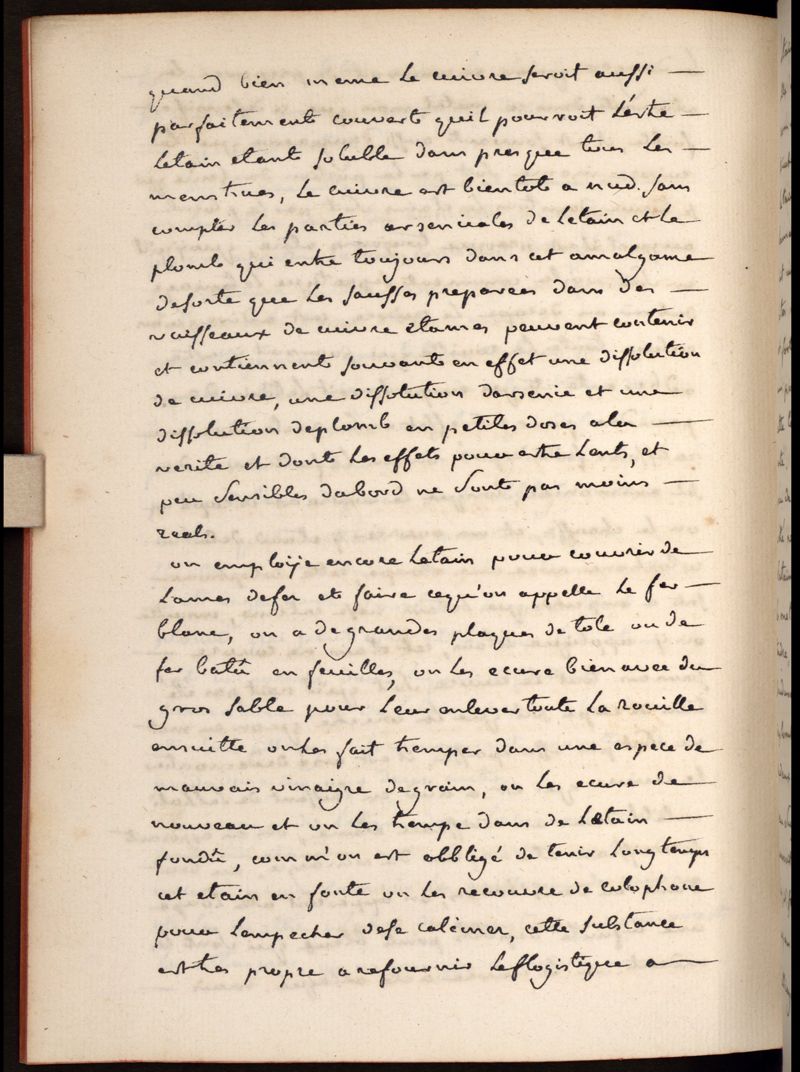 quand bien meme le cuivre seroit aussi —
parfaitement couvert quil pourroit l'estre —
Letain etant soluble dans presque tous les —
menstrues, le cuivre est bientot a nud. sans
compter les parties arsenicales de letain et le
plomb qui entre toujours dans cet amalgame
desorte que les sausses preparées dans des —
vaisseaux de cuivre etames peuvent contenir
et contiennent souvent en effet une dissolution
de cuivre, une dissolution darsenic et une
dissolution deplomb en petites doses ala —
verite et dont les effets pour estre lents, et
peu sensibles dabord ne sont pas moins —
reels.
on employe encore letain pour couvrir de
Lames defer et faire cequ'on appelle le fer —
blanc, on a de grandes plaques de tole ou de
fer batü en feuilles, on les ecure bien avec du
gros sable pour leur enlever toute la rouille
ensuitte on les fait tremper dans une espece de
mauvais vinaigre degrain, on les ecure de —
nouveau et on les trempe dans de letain —
fondü, comm'on est obbligé de tenir longtemps
cet etain en fonte on les recouvre de colophone
pour lempecher dese calciner, cette substance
est tres propre a refournir leflogistique a —